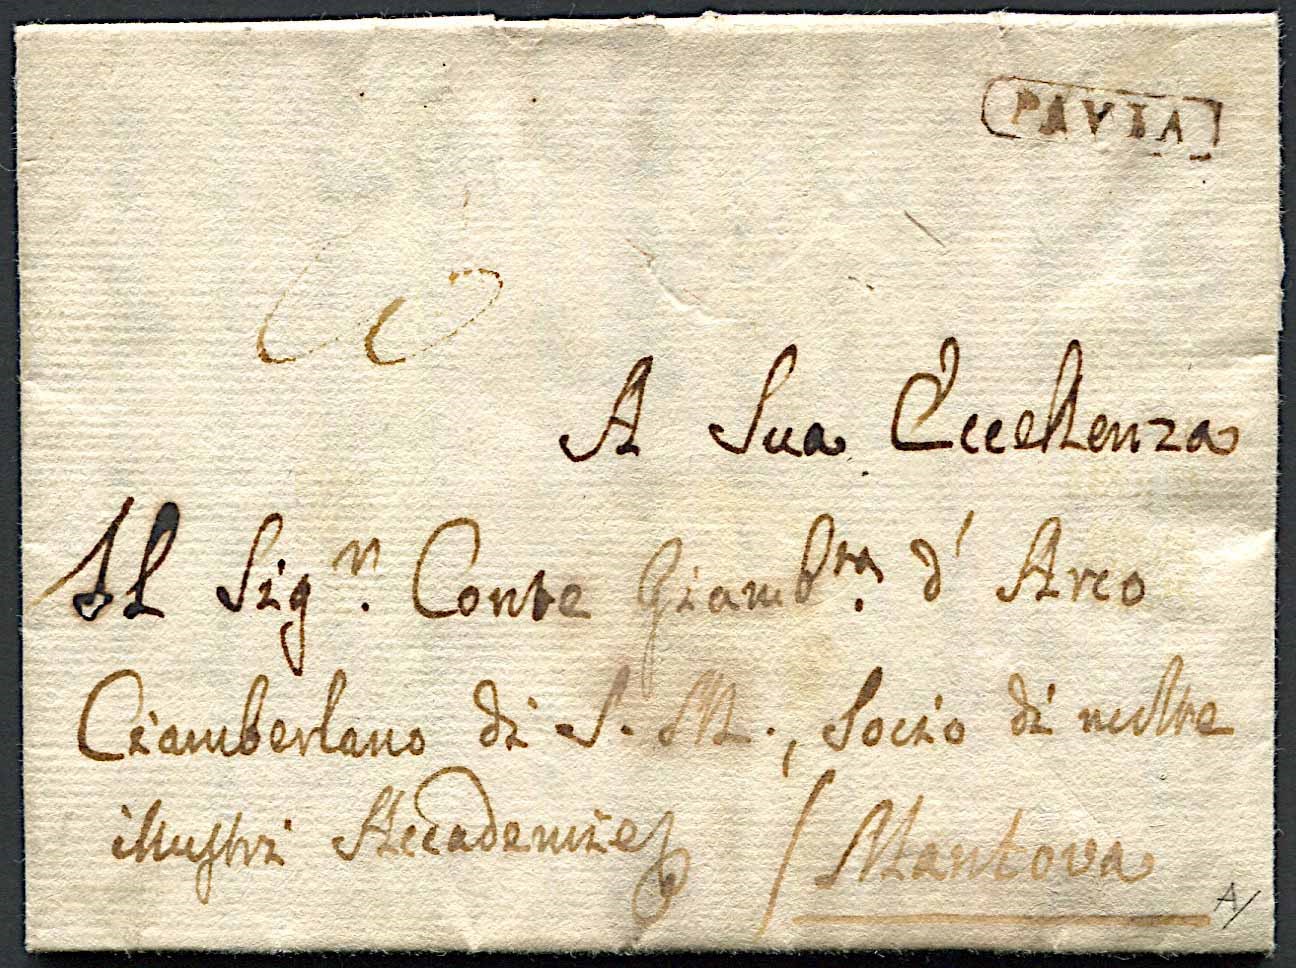 PAVIA
A Sua Eccellenza
Il Sig.r Conte Giamb.ta d' Arco
Ciamberlano di S. M., Socio di molte
illustri Accademie
Mantova
A/